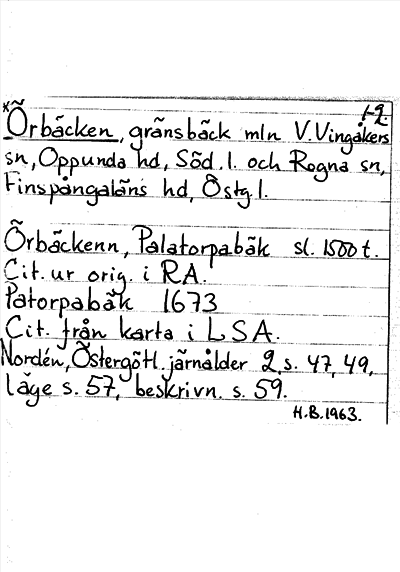 1-2.
*Örbäcken, gränsbäck mln V. Vingåkers
sn, Oppunda hd, Söd. l. och Rogna sn,
Finspångaläns hd, Östg. l.
Örbäckenn, Palatorpabäk sl. 1500 t.
Cit. ur orig. i RA.
Patorpabäk 1673
Cit. från karta i LSA.
Nordén, Östergötl. järnålder 2, s. 47, 49,
läge s. 57, beskrivn. s. 59.
H.B. 1963.